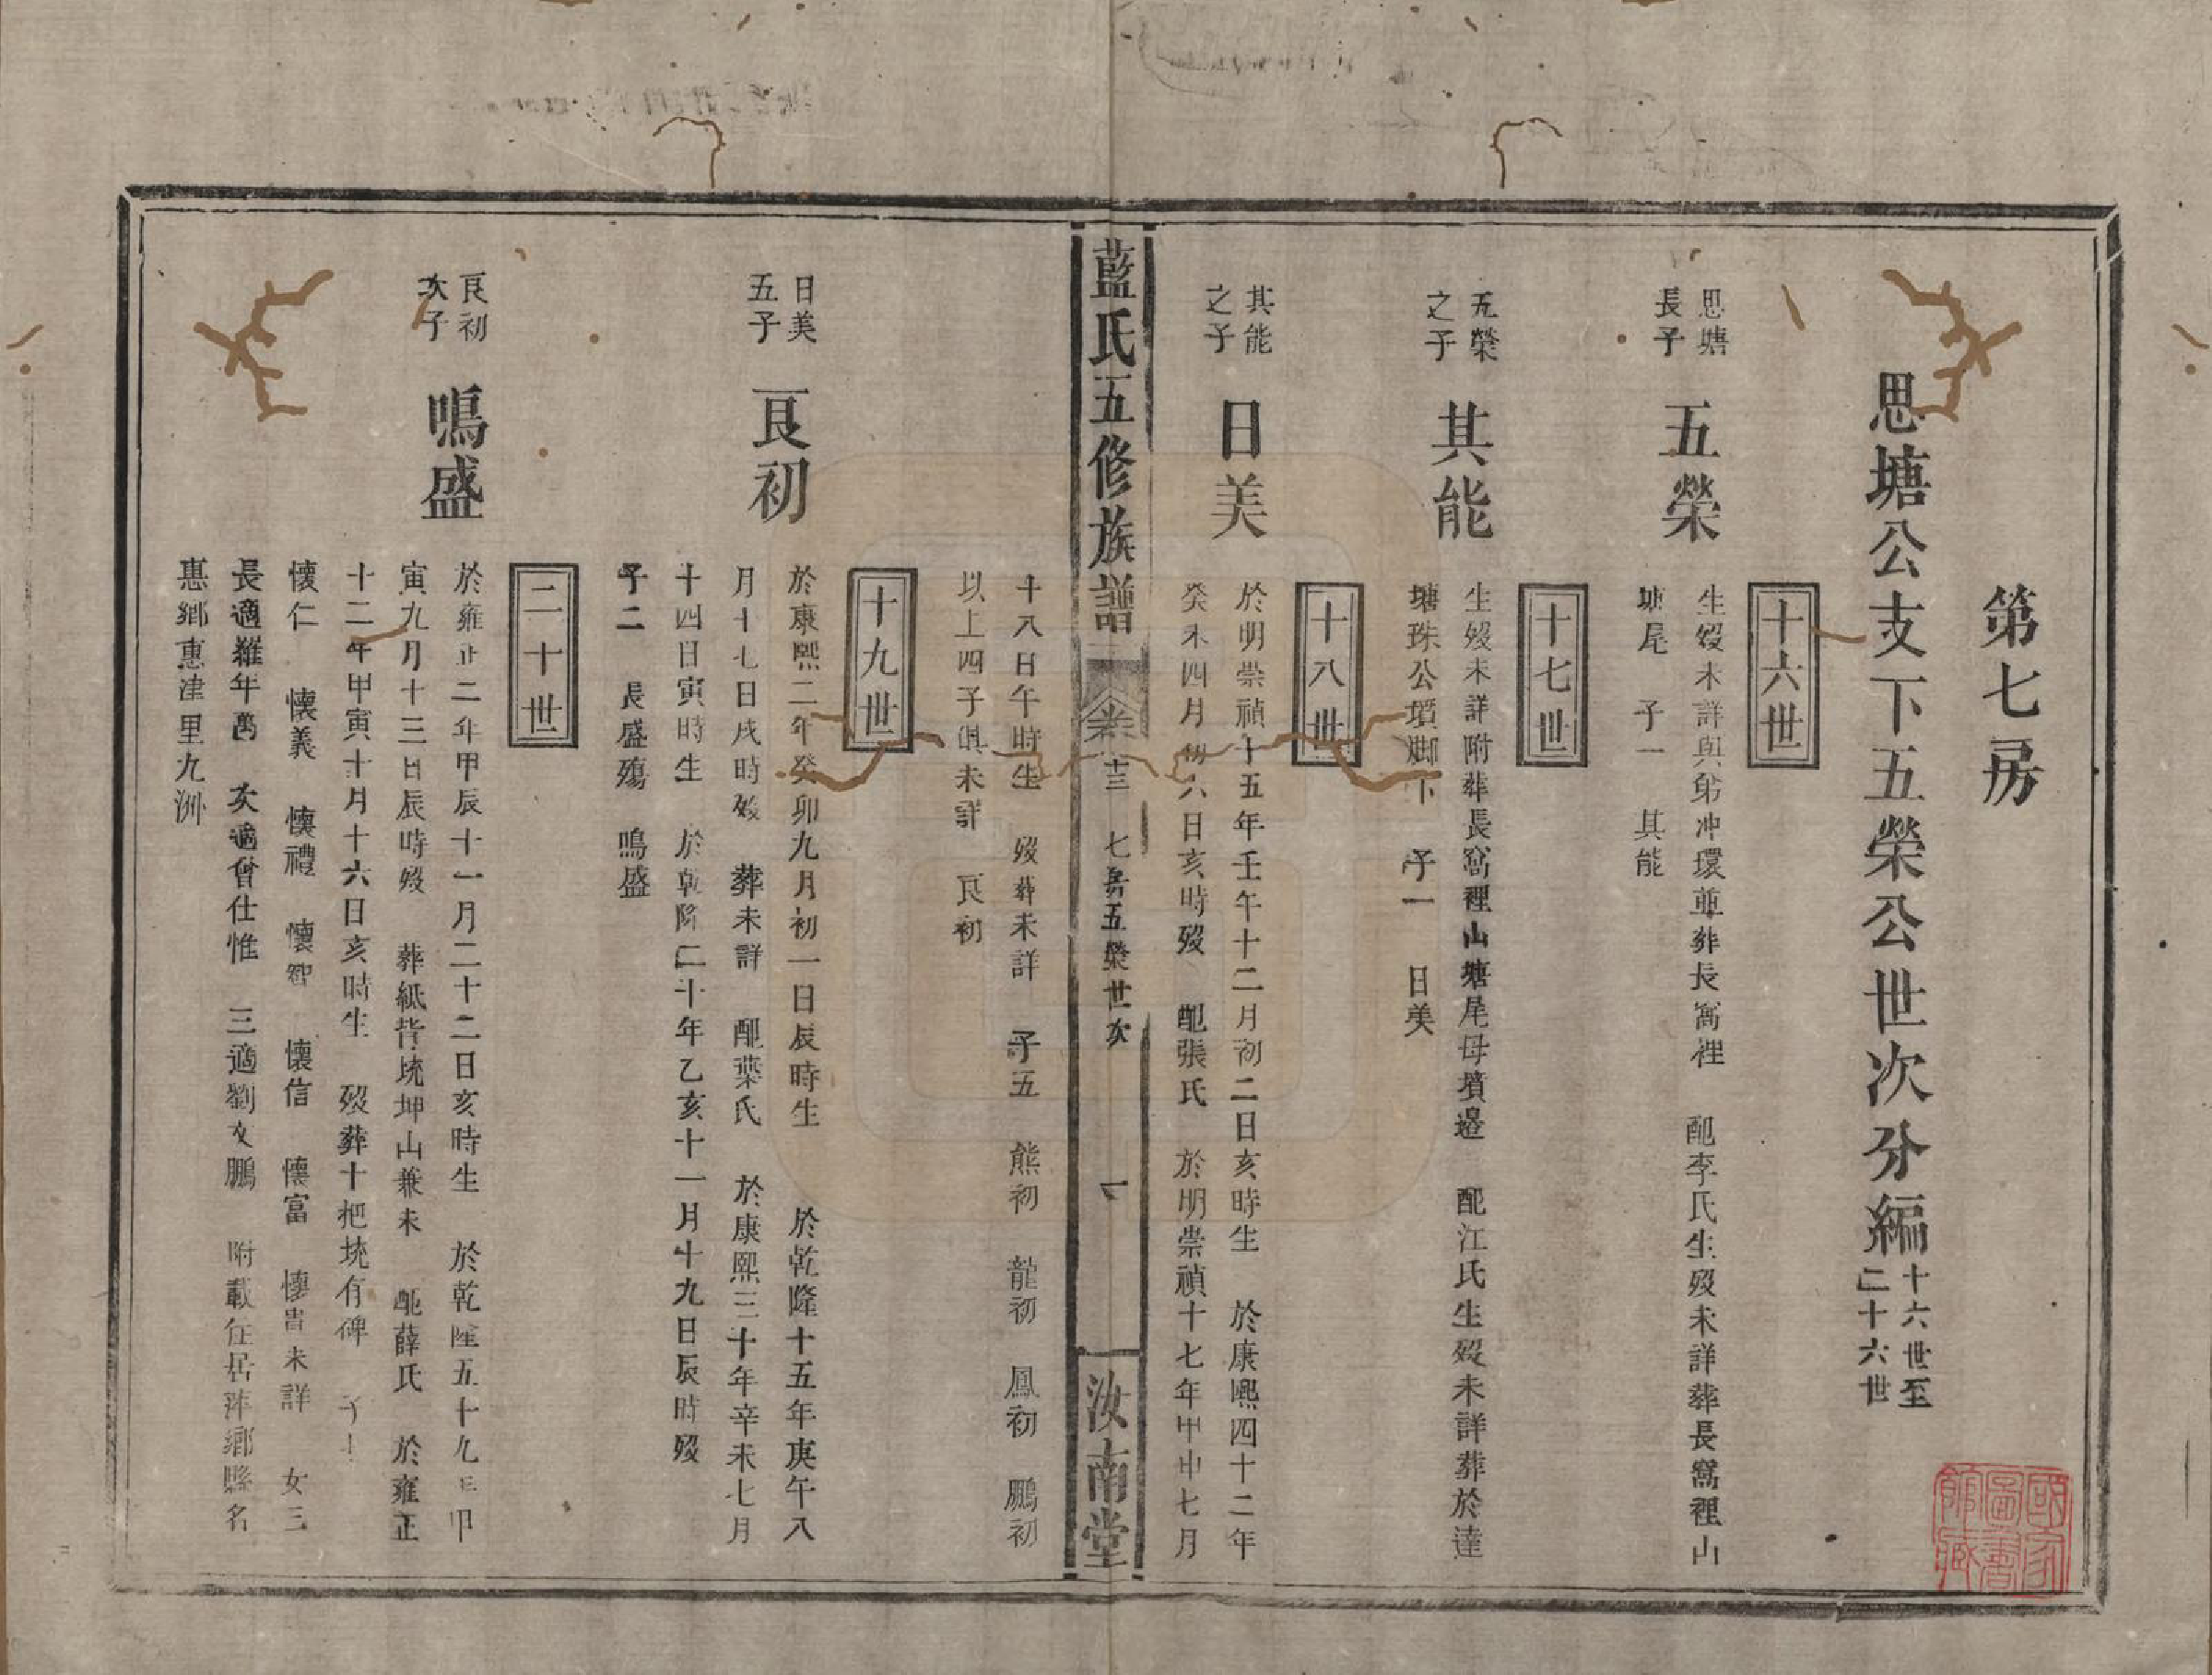 第七房
思塘公支下五榮公世次分編十六世至二十六世
十六世
思塘長子 五榮 生歿未詳與弟冲環並葬長窩裡 配李氏生歿未詳葬長窩裡山
塘尾 子一 其能
十七世
五榮之子 其能 生歿未詳附葬長窩裡山塘尾母墳邉 配江氏生歿未詳葬於達
塘珠公墳脚下 子一 日美
十八世
其能之子 日美 於明崇禎十五年壬午十二月初二日亥時生 於康熙四十二年
癸未四月初六日亥時歿 配張氏 於明崇禎十七年甲申七月
藍氏五修族譜 卷十三 七房五榮世次 一 汝南堂
十八日午時生 歿葬未詳 子五 熊初 龍初 鳳初 鵬初
以上四子俱未詳 良初
十九世
日美五子 良初 於康熙二年癸卯九月初一日辰時生 於乾隆十五年庚午八
月十七日戌時歿 葬未詳 配葉氏 於康熙三十年辛未七月
十四日寅時生 於乾隆二十年乙亥十一月十九日辰時歿
子二 長盛殤 鳴盛
二十世
良初次子 鳴盛 於雍正二年甲辰十一月二十二日亥時生 於乾隆五十九年甲
寅九月十三日辰時歿 葬紙背垅坤山兼未 配薛氏 於雍正
十二年甲寅十月十六日亥時生 歿葬十把垅有碑 子七
懷仁 懷義 懷禮 懷智 懷信 懷富 懷貴未詳 女三
長適羅年萬 次適曾仕惟 三適劉文鵬 附載住居萍鄉縣名
惠鄉惠津里九洲
國家圖書館藏